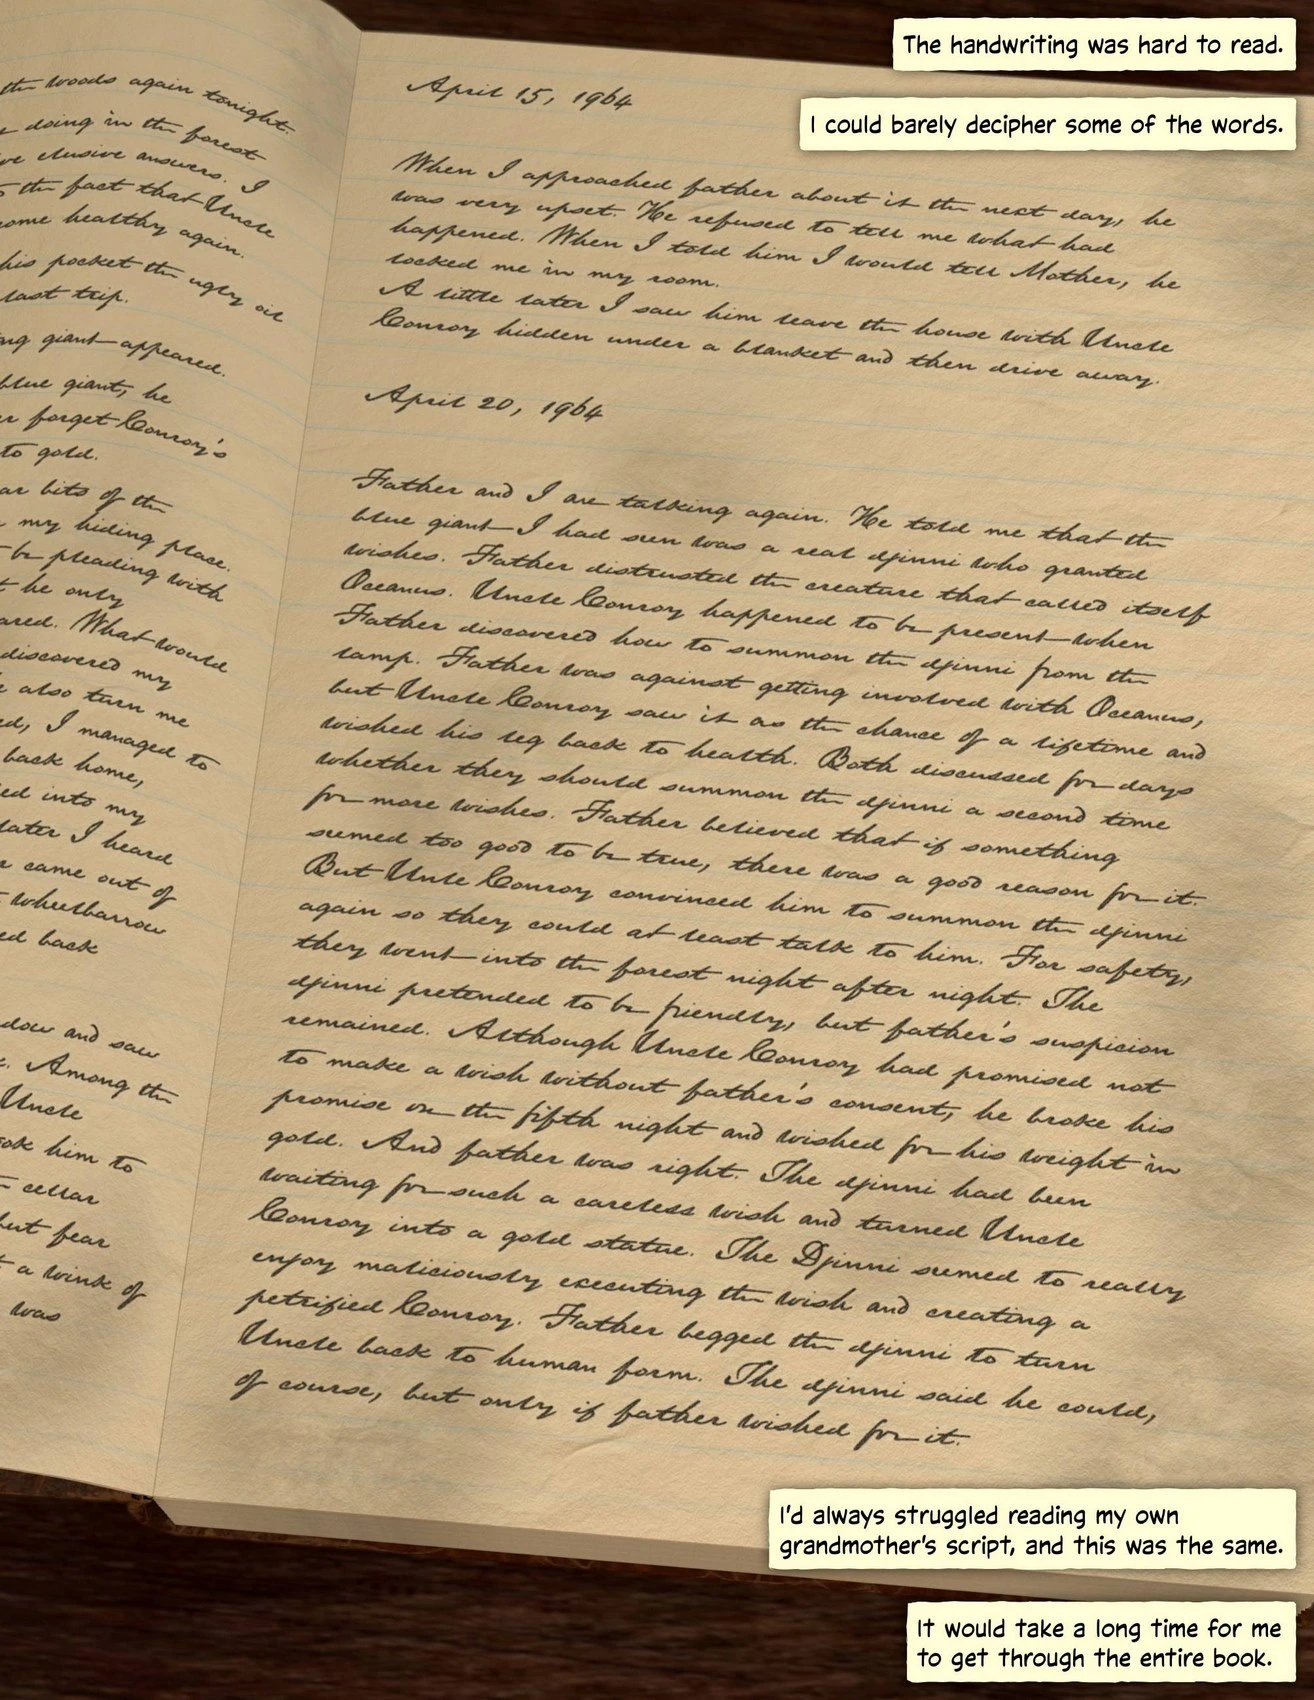 The handwriting was hard to read.
I could barely decipher some of the words.
the woods again tonight.
doing in the forest
elusive answers. I
the fact that Uncle
come healthy again.
his pocket the ugly oil
last trip.
giant appeared.
blue giant, he
forget Conroy's
to gold.
bits of the
my hiding place.
be pleading with
he only
What would
discovered my
also turn me
I managed to
back home,
into my
later I heard
came out of
wheelbarrow
back
and saw
Among the
Uncle
him to
cellar
but fear
a wink of
was
April 15, 1964
When I approached father about it the next day, he
was very upset. He refused to tell me what had
happened. When I told him I would tell Mother, he
locked me in my room.
A little later I saw him leave the house with Uncle
Conroy hidden under a blanket and then drive away.
April 20, 1964
Father and I are talking again. He told me that the
blue giant I had seen was a real djinni who granted
wishes. Father distrusted the creature that called itself
Oceanus. Uncle Conroy happened to be present when
Father discovered how to summon the djinni from the
lamp. Father was against getting involved with Oceanus,
but Uncle Conroy saw it as the chance of a lifetime and
wished his leg back to health. Both discussed for days
whether they should summon the djinni a second time
for more wishes. Father believed that if something
seemed too good to be true, there was a good reason for it.
But Unlce Conroy convinced him to summon the djinni
again so they could at least talk to him. For safety,
they went into the forest night after night. The
djinni pretended to be friendly, but father's suspicion
remained. Although Uncle Conroy had promised not
to make a wish without father's consent, he broke his
promise on the fifth night and wished for his weight in
gold. And father was right. The djinni had been
waiting for such a careless wish and turned Uncle
Conroy into a gold statue. The Djinni seemed to really
enjoy maliciously executing the wish and creating a
petrified Conroy. Father begged the djinni to turn
Uncle back to human form. The djinni said he could,
of course, but only if father wished for it.
I'd always struggled reading my own
grandmother's script, and this was the same.
It would take a long time for me
to get through the entire book.